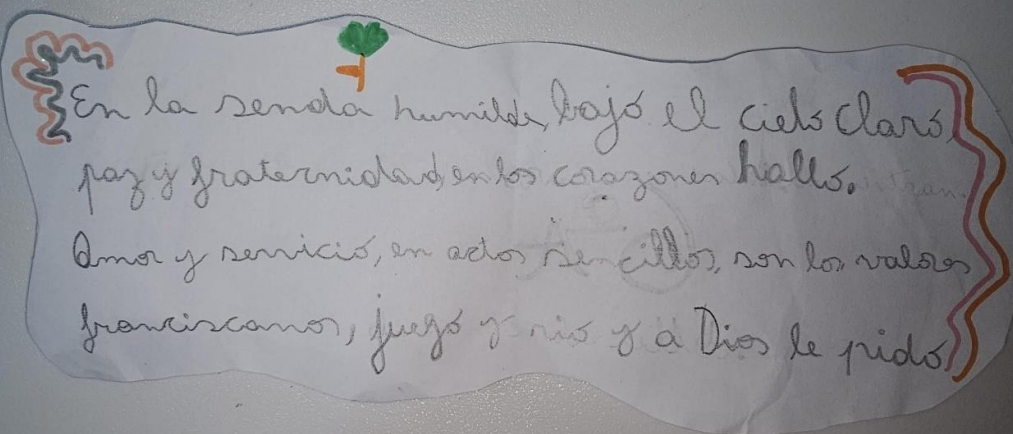 En la senda humilde, bajo el cielo claro,
paz y fraternidad, en los corazones hallo.
Amor y servicio, en actos sencillos, son los valores
franciscanos, juego y rio y a Dios le pido,